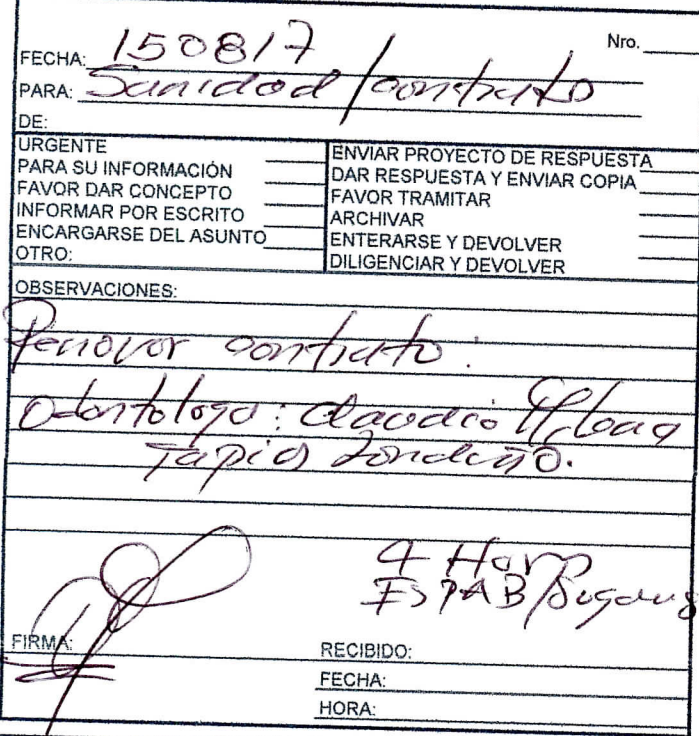 Nro.
FECHA: 150817
PARA: Sanidad / contrato
DE:
URGENTE
PARA SU INFORMACIÓN
FAVOR DAR CONCEPTO
INFORMAR POR ESCRITO
ENCARGARSE DEL ASUNTO
OTRO:
ENVIAR PROYECTO DE RESPUESTA
DAR RESPUESTA Y ENVIAR COPIA
FAVOR TRAMITAR
ARCHIVAR
ENTERARSE Y DEVOLVER
DILIGENCIAR Y DEVOLVER
OBSERVACIONES:
Renovar contrato:
Odontologo: Claudia
Tapia Londoño.
4 Horas
ESPAB
FIRMA:
RECIBIDO:
FECHA:
HORA: